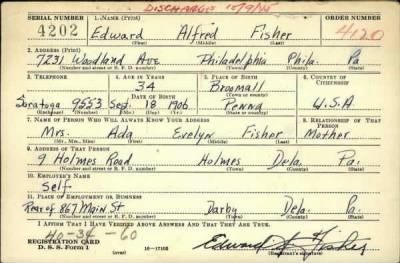 DISCHARGE
SERIAL NUMBER 1. NAME (Print) ORDER NUMBER
4202 Edward Alfred Fisher 4120
(First) (Middle) (Last)
2. ADDRESS (Print)
7231 Woodland Ave Philadelphia Phila. Pa
(Number and street or R. F. D. number) (Town) (County) (State)
3. TELEPHONE 4. AGE IN YEARS 5. PLACE OF BIRTH 6. COUNTRY OF CITIZENSHIP
34 Broomall
DATE OF BIRTH (Town or county)
Saratoga 9553 Sept. 18 1906 Penna U.S.A.
(Exchange) (Number) (Mo.) (Day) (Yr.) (State or country)
7. NAME OF PERSON WHO WILL ALWAYS KNOW YOUR ADDRESS 8. RELATIONSHIP OF THAT PERSON
Mrs. Ada Evelyn Fisher Mother
(Mr., Mrs., Miss) (First) (Middle) (Last)
9. ADDRESS OF THAT PERSON
9 Holmes Road Holmes Dela. Pa.
(Number and street or R. F. D. number) (Town) (County) (State)
10. EMPLOYER'S NAME
Self
11. PLACE OF EMPLOYMENT OR BUSINESS
Rear of 867 Main St Darby Dela. Pa.
(Number and street or R. F. D. number) (Town) (County) (State)
I AFFIRM THAT I HAVE VERIFIED ABOVE ANSWERS AND THAT THEY ARE TRUE.
40-34-60
REGISTRATION CARD
D. S. S. Form 1 (over) 16-17105 Edward A Fisher
(Registrant's signature)